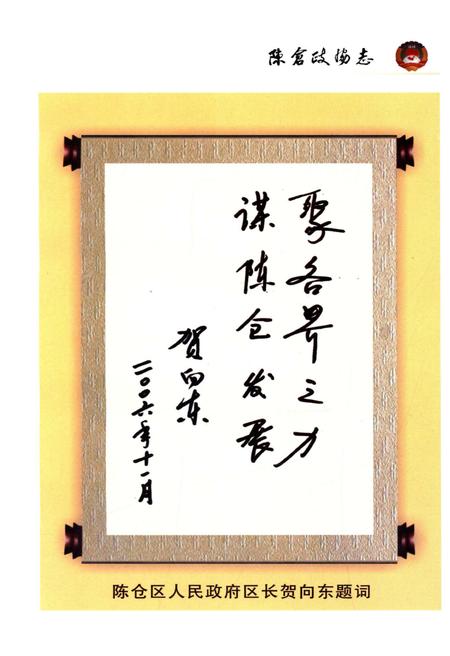 陈仓政协志
聚各界之力
谋陈仓发展
贺向东
二〇〇六年十一月
陈仓区人民政府区长贺向东题词